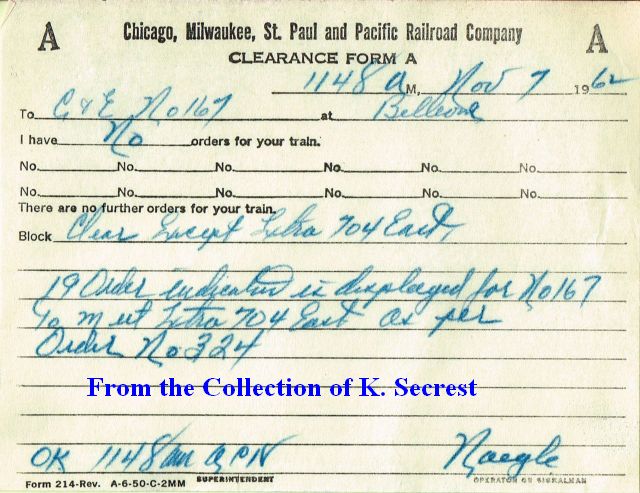 A Chicago, Milwaukee, St. Paul and Pacific Railroad Company A
CLEARANCE FORM A
1148 A M, Nov 7 1962
To C & E No 167 at Bellevue
I have No orders for your train.
No. No. No. No. No. No.
No. No. No. No. No. No.
There are no further orders for your train.
Block Clear Except Extra 704 East,
19 Order indicator is displayed for No 167
To meet Extra 704 East as per
Order No 324
From the Collection of K. Secrest
OK 1148 am Naegle
SUPERINTENDENT OPERATOR OR SIGNALMAN
Form 214-Rev. A-6-50-C-2MM